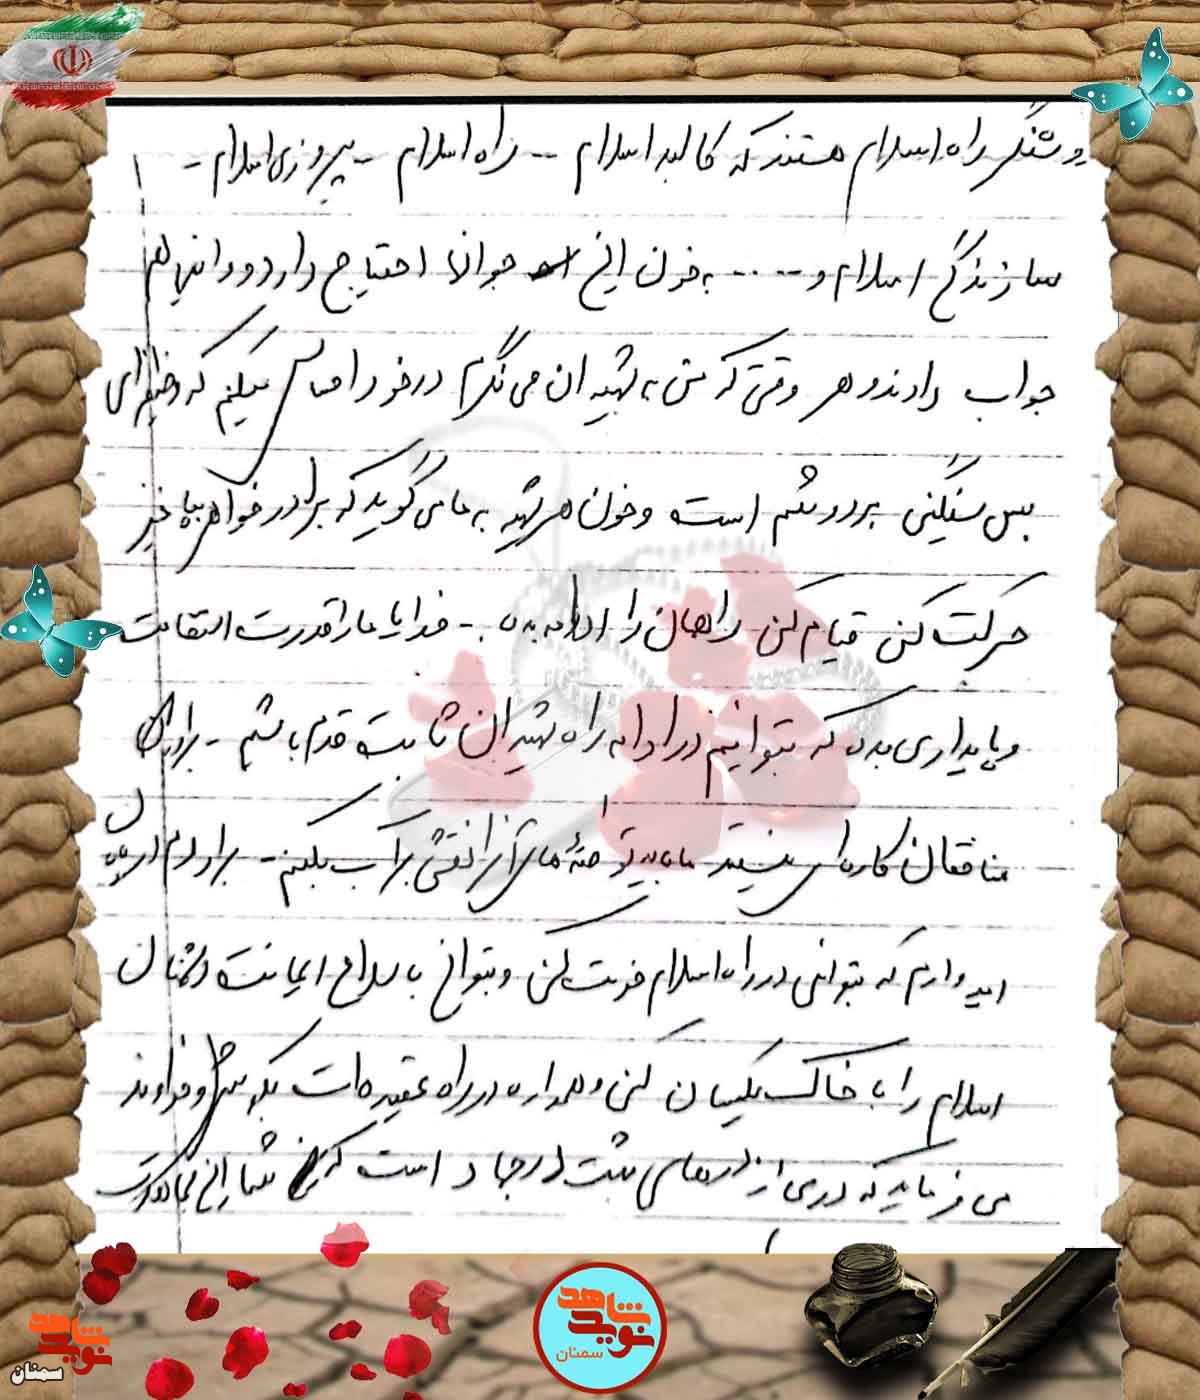 روشنگر راه اسلام هستند که کالبد اسلام -- راه اسلام - پیروزی اسلام -
سازندگی اسلام و .... به خون این جوانا احتیاج دارد و اینهم
جواب دادند و هر وقتی که من به شهیدان می نگرم در خود احساس میکنم که وظیفه ای
بس سنگینی بر دوشم است و خون هر شهید به ما می گوید که برادر خواهر بپا خیز
حرکت کن قیام کن راهمان را ادامه بده . - خدایا ما را قدرت استقامت
و پایداری بده که بتوانیم در ادامه راه شهیدان ثابت قدم باشیم - برادران
منافقان کاره ای نیستند ما باید توطئه های آنرا نقش برآب بکنیم - برادرم
امیدوارم که بتوانی در راه اسلام خدمت کنی و بتوانی با سلاح ایمانت دشمنان
اسلام را با خاک یکسان کنی و همواره در راه عقیده ات بکوش و خداوند
می فرماید که دری از درهای بهشت در جهاد است که شما
شاهد
نوید
سمنان
شاهد
نوید
سمنان